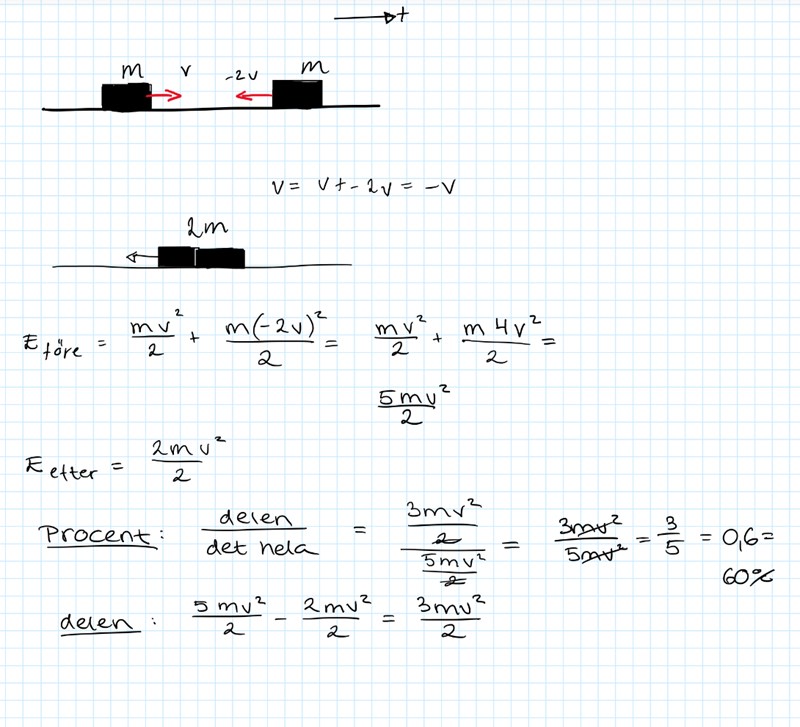 +
m v -2v m
v = v + - 2v = -v
2m
E före = mv²/2 + m(-2v)²/2 = mv²/2 + m 4v²/2 =
5mv²/2
E efter = 2mv²/2
Procent: delen/det hela = (3mv²/2)/(5mv²/2) = 3mv²/5mv² = 3/5 = 0,6 =
60%
delen: 5mv²/2 - 2mv²/2 = 3mv²/2